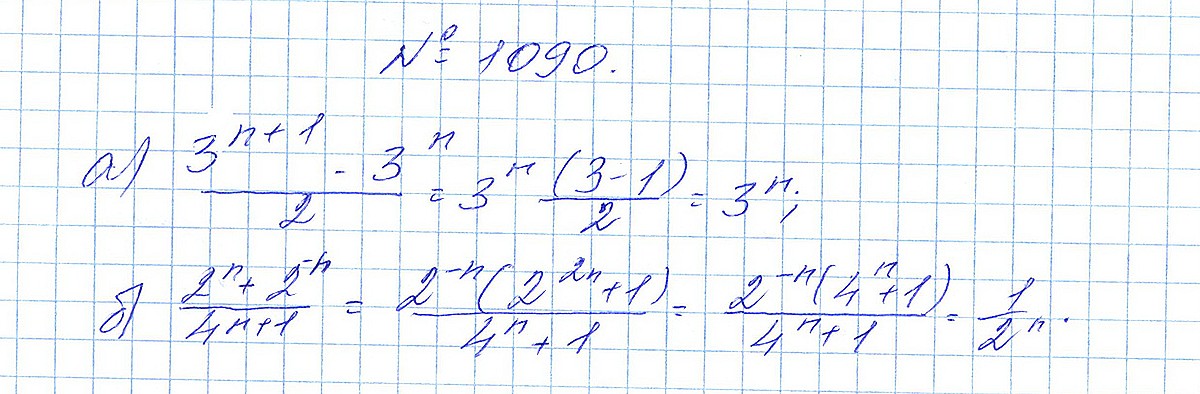 № 1090.
а) (3^(n+1) - 3^n)/2 = 3^n (3-1)/2 = 3^n;
б) (2^n + 2^(-n))/(4^n+1) = 2^(-n)(2^(2n)+1)/(4^n+1) = 2^(-n)(4^n+1)/(4^n+1) = 1/2^n.